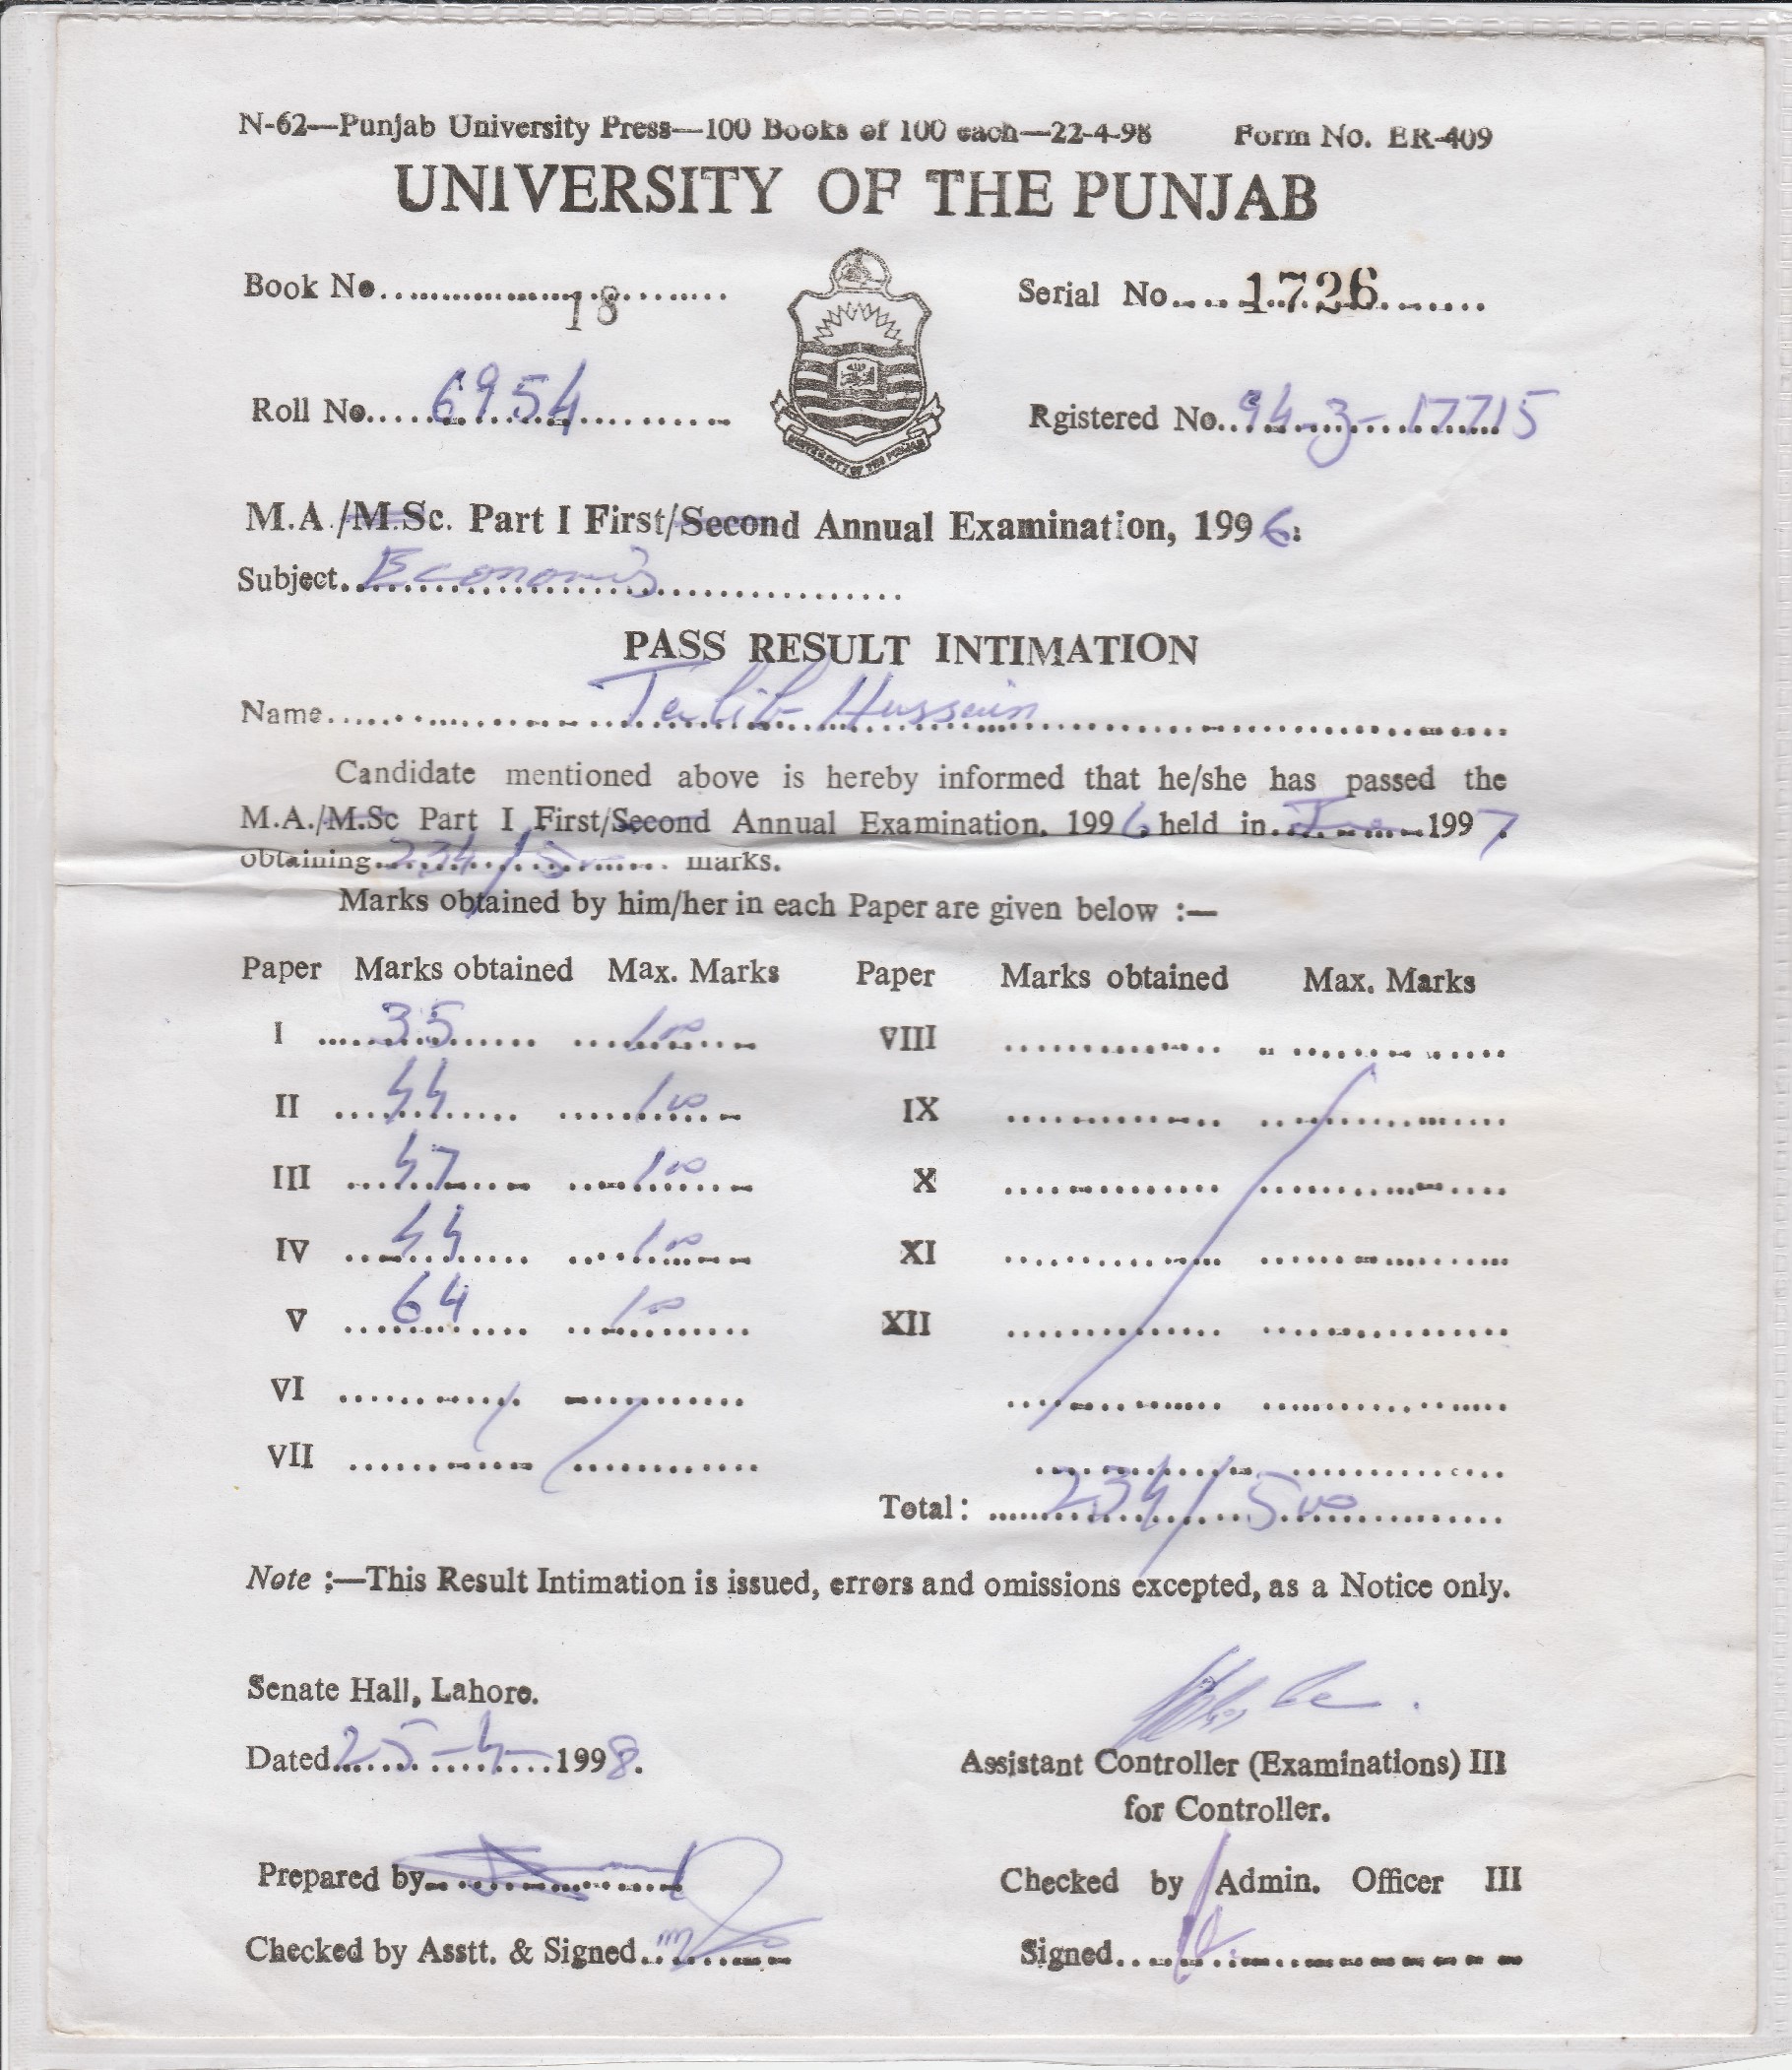 N-62—Punjab University Press—100 Books of 100 each—22-4-98 Form No. ER-409
UNIVERSITY OF THE PUNJAB
Book No. 18 Serial No. 1726
Roll No. 6954 Rgistered No. 94-3-17715
UNIVERSITY OF THE PUNJAB
M.A./M.Sc. Part I First/Second Annual Examination, 1996.
Subject. Economis
PASS RESULT INTIMATION
Name Talib Hussain
Candidate mentioned above is hereby informed that he/she has passed the
M.A./M.Sc Part I First/Second Annual Examination, 1996 held in 1997,
obtaining 234/5 marks.
Marks obtained by him/her in each Paper are given below :—
Paper Marks obtained Max. Marks Paper Marks obtained Max. Marks
I 35 100 VIII
II 44 100 IX
III 47 100 X
IV 44 100 XI
V 64 100 XII
VI
VII
Total: 234/500
Note :—This Result Intimation is issued, errors and omissions excepted, as a Notice only.
Senate Hall, Lahore.
Dated 25-4-1998.
Assistant Controller (Examinations) III
for Controller.
Prepared by Checked by Admin. Officer III
Checked by Asstt. & Signed Signed